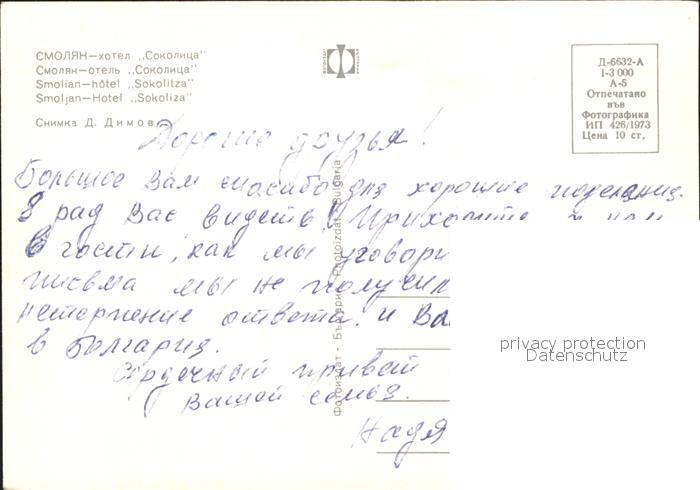 СМОЛЯН—хотел „Соколица"
Смолян—отель „Соколица"
Smolian—hôtel „Sokolitza"
Smoljan—Hotel „Sokoliza"
Снимка Д. Димов
Д-6632-А
1-3 000
А-5
Отпечатано
във
Фотографика
ИП 426/1973
Цена 10 ст.
Фотоиздат - България Photoizdat - Bulgaria
Дорогие друзья!
Большое Вам спасибо для хорошие
Я рад Вас видеть! Приходите к нам
в гости, как мы уговори
письма мы не получил
нетерпение ответа и Ва
в Болгария.
Сердечный привет
Вашой семья.
Надя
privacy protection
Datenschutz